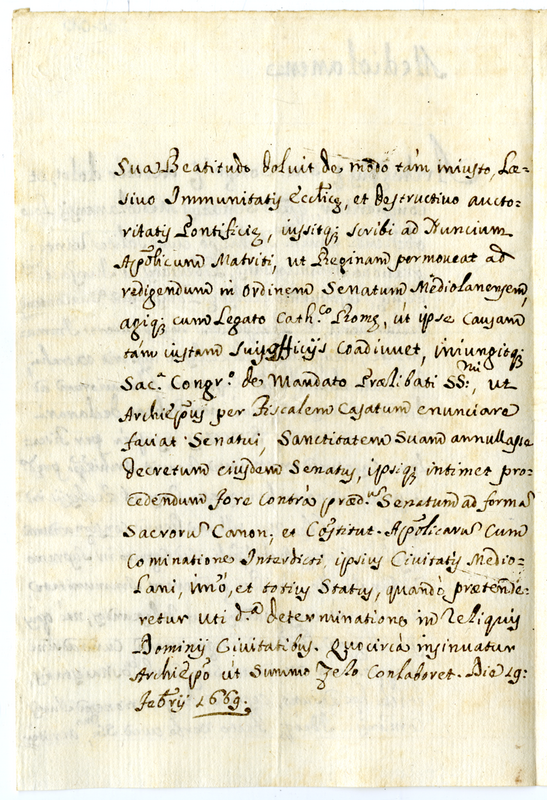 Sua Beatitudo doluit de modo tàm iniusto, Læ=
sivo Immunitatis Eccl̃icę, et destructivo aucto=
ritatis Pontificię, iussitq; scribi ad Nuncium
Ap̃olicum Matriti, ut Reginam permoveat ad
redigendum in Ordinem Senatum Mediolanensem,
agiq; cum Legato Cath.co Romę, ùt ipse Causam
tàm iustam suis officijs coadiuvet, iniungitq;
Sac.a Congr.o de Mandato Prælibati SS.mi, ut
Archiep̃us per Fiscalem Casatum enunciare
faciat Senatui, Sanctitatem Suam annullasse
decretum eiusdem Senatus, ipsiq; intimet pro=
cedendum fore contrà præd.um Senatum ad formã
Sacrorũ Canon; et Cõstitut. Ap̃olicarũ cum
cominatione Interdicti, ipsius Civitatis Medio=
Lani, imò, et totius Status, quandò prætende=
retur uti d.a determinatione in reliquis
Dominij Civitatibus. Quocircà insinuatur
Archiep̃o ùt summo Zelo conlaboret. Die 19:
Feb̃rij 1669.